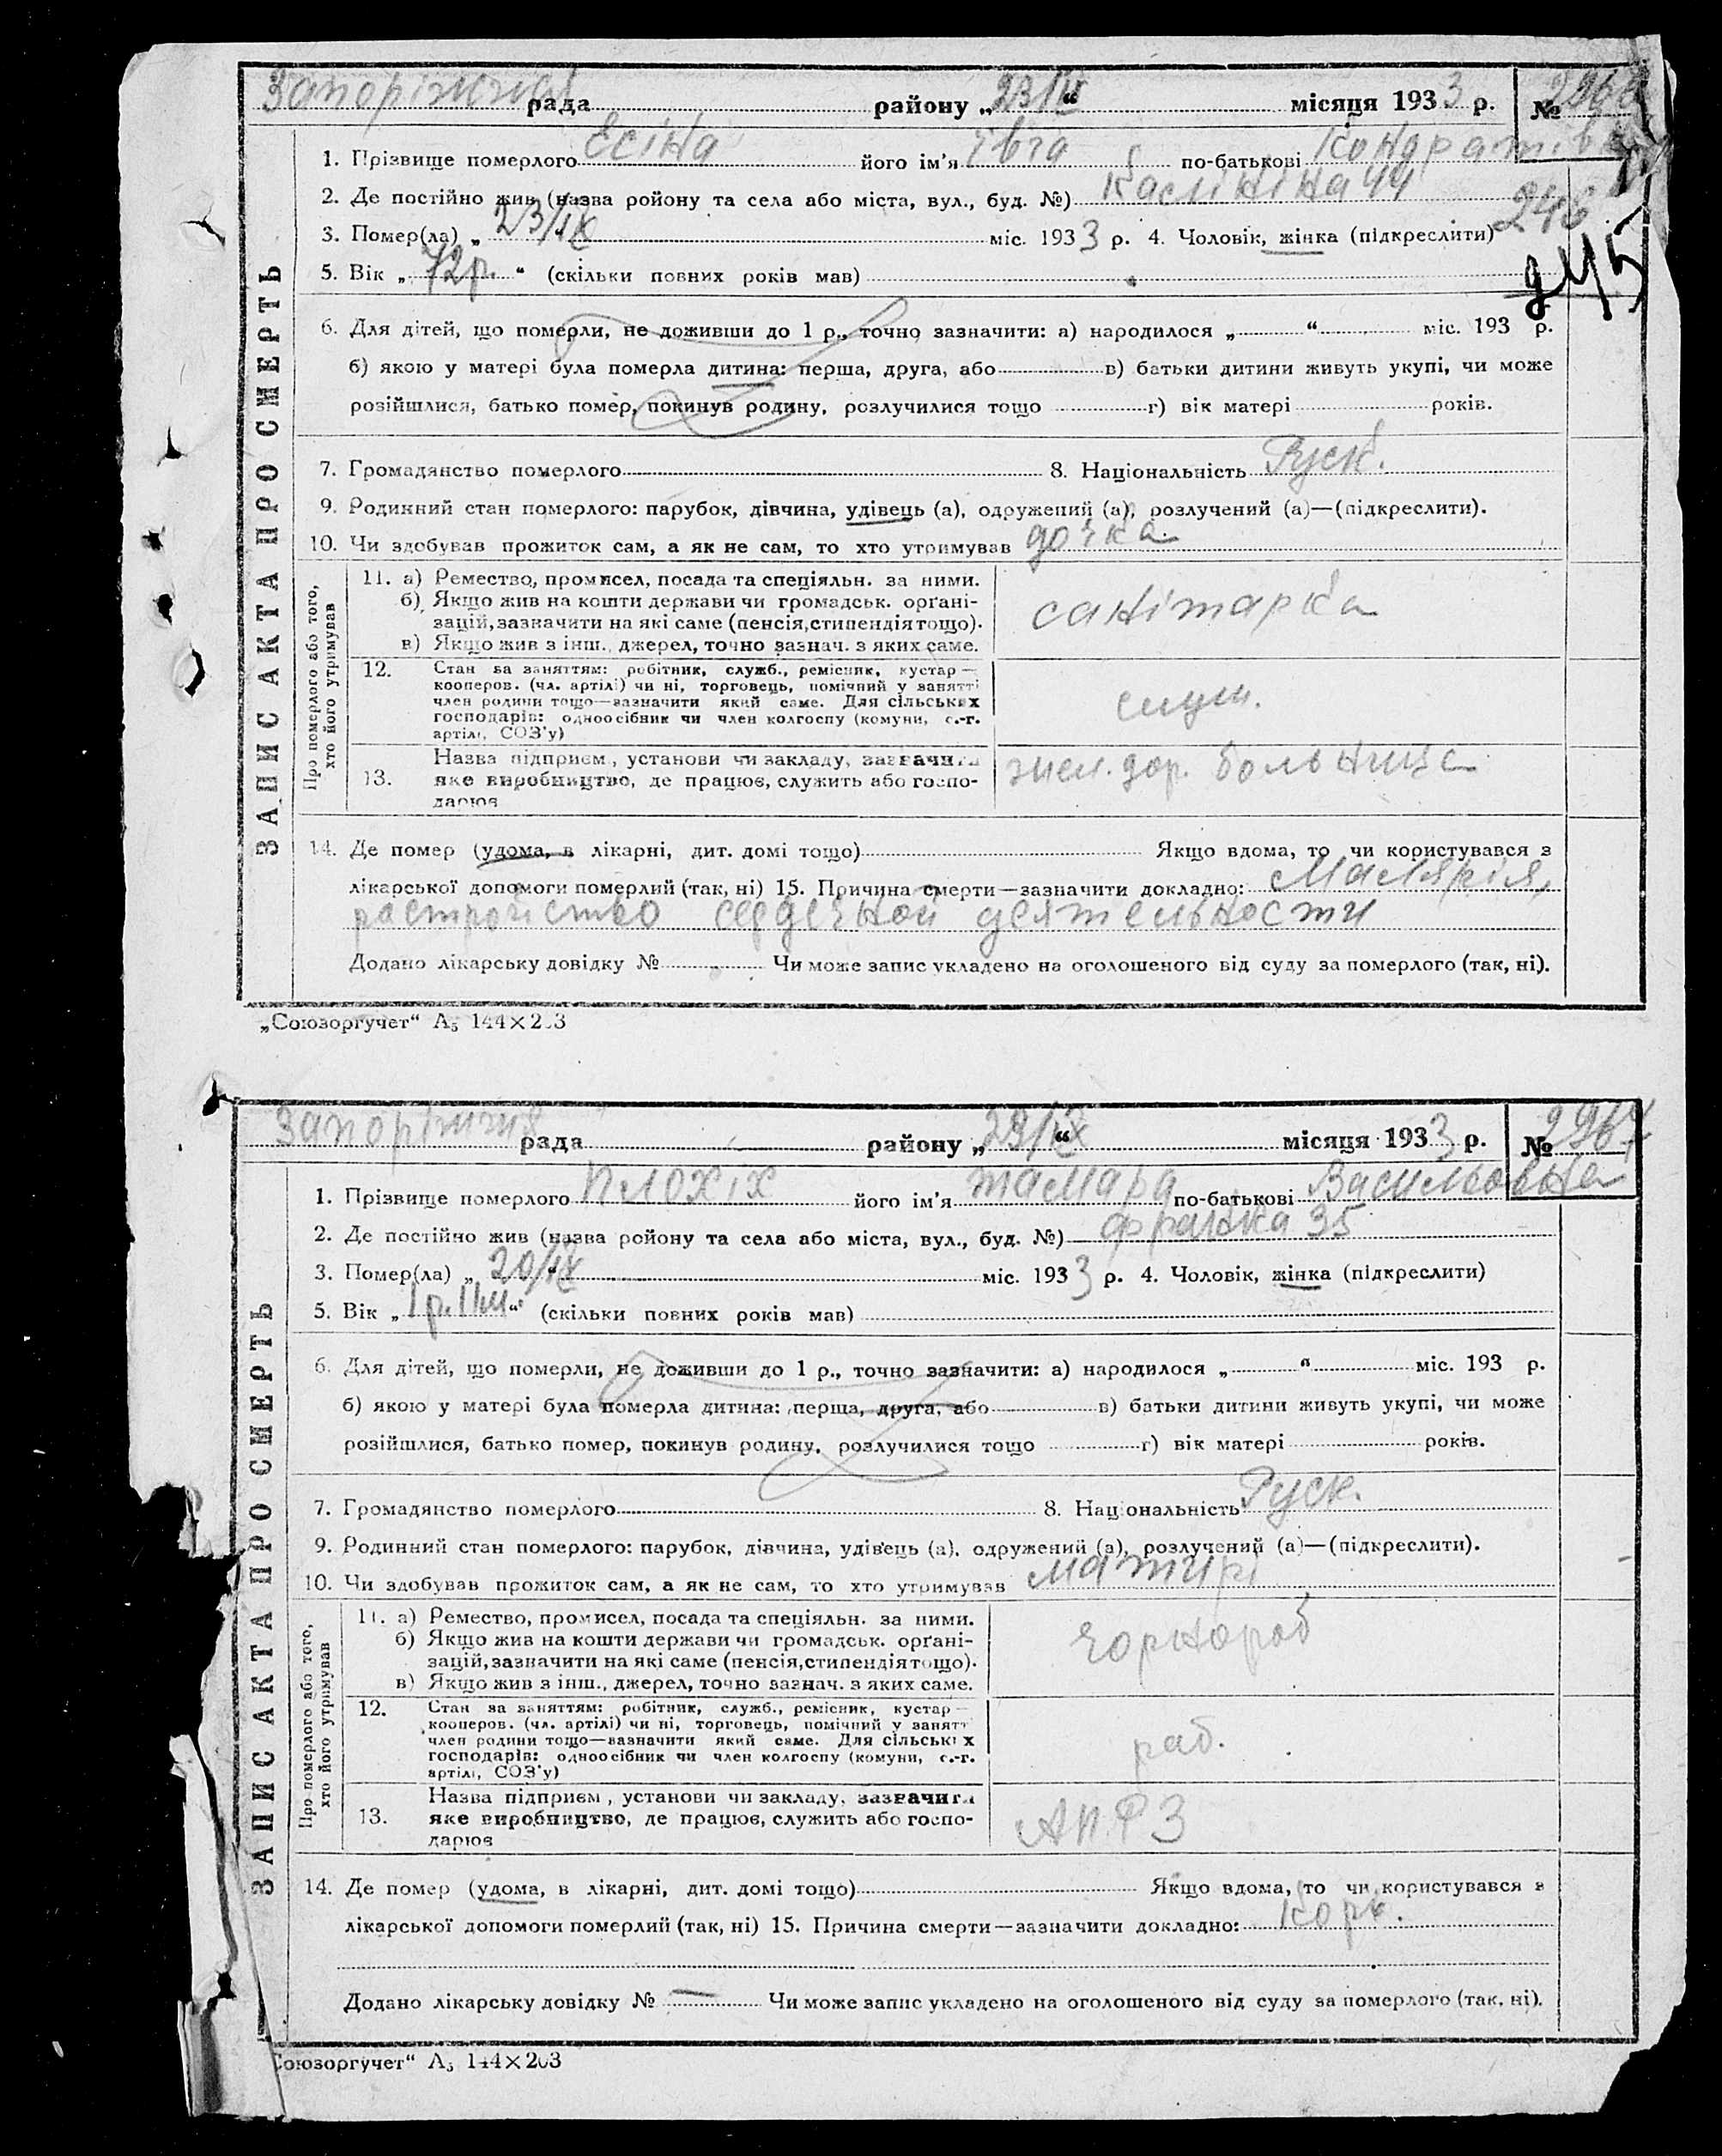 Запоріжжя рада района „23/IX“ місяця 1933 р. №
1. Прізвище померлого Єсіна його ім’я Євга по-батькові Кондратівна
2. Де постійно жив (назва ройону та села або міста, вул., буд. №) 44
3. Помер(ла) „23/IX міс. 1933 р. 4. Чоловік, жінка (підкреслити) 246
245
5. Вік „72р.“ (скільки повних років мав)
6. Для дітей, що померли, не доживши до 1 р., точно зазначити: а) народилося „ “ міс. 193 р.
б) якою у матері була померла дитина: перша, друга, або в) батьки дитини живуть укупі, чи може
розійшлися, батько помер, покинув родину, розлучилися тощо г) вік матері років.
7. Громадянство померлого 8. Національність Руск.
9. Родинний стан померлого: парубок, дівчина, удівець (а), одружений (а), розлучений (а)—(підкреслити).
10. Чи здобував прожиток сам, а як не сам, то хто утримував дочка
ЗАПИС АКТА ПРО СМЕРТЬ
Про померлого або того, хто його утримував
11. а) Ремество, промисел, посада та спеціяльн. за ними.
б) Якщо жив на кошти держави чи громадськ. орґані-
зацій, зазначити на які саме (пенсія, стипендія тощо).
в) Якщо жив з інш. джерел, точно зазнач. з яких саме.
санітарка
12. Стан за заняттям: робітник, служб., ремісник, кустар—
кооперов. (чл. артілі) чи ні, торговець, помічний у занятті
член родини тощо—зазначити який саме. Для сільських
господарів: одноосібник чи член колгоспу (комуни, с.-г.
артілі, СОЗ’у)
служ.
13. Назва підприєм., установи чи закладу, зазначити
яке виробництво, де працює, служить або госпо-
дарює
жел. дор. больница
14. Де помер (удома, в лікарні, дит. домі тощо) Якщо вдома, то чи користувався з
лікарської допомоги померлий (так, ні) 15. Причина смерти—зазначити докладно: Малярія,
растройство сердечной деятельности
Додано лікарську довідку № Чи може запис укладено на оголошеного від суду за померлого (так, ні).
„Союзоргучет“ А₅ 144×203
Запоріжжя рада району „29/IX“ місяця 1933 р. № 2967
1. Прізвище померлого Плохіх його ім’я Тамара по-батькові Васильовна
2. Де постійно жив (назва ройону та села або міста, вул., буд. №) Франка 35
3. Помер(ла) „20/IX“ міс. 1933 р. 4. Чоловік, жінка (підкреслити)
5. Вік „1 р. 11м.“ (скільки повних років мав)
6. Для дітей, що померли, не доживши до 1 р., точно зазначити: а) народилося „ “ міс. 193 р.
б) якою у матері була померла дитина: перша, друга, або в) батьки дитини живуть укупі, чи може
розійшлися, батько помер, покинув родину, розлучилися тощо г) вік матері років.
7. Громадянство померлого 8. Національність Руск.
9. Родинний стан померлого: парубок, дівчина, удівець (а), одружений (а), розлучений (а)—(підкреслити).
10. Чи здобував прожиток сам, а як не сам, то хто утримував матирі
ЗАПИС АКТА ПРО СМЕРТЬ
Про померлого або того, хто його утримував
11. а) Ремество, промисел, посада та спеціяльн. за ними.
б) Якщо жив на кошти держави чи громадськ. орґані-
зацій, зазначити на які саме (пенсія, стипендія тощо).
в) Якщо жив з інш., джерел, точно зазнач. з яких саме.
чорнороб
12. Стан за заняттям: робітник, служб., ремісник, кустар—
кооперов. (чл. артілі) чи ні, торговець, помічний у занятт
член родини тощо—зазначити який саме. Для сільських
господарів: одноосібник чи член колгоспу (комуни, с.-г.
артілі, СОЗ’у)
раб.
13. Назва підприєм, установи чи закладу, зазначити
яке виробництво, де працює, служить або госпо-
дарює
14. Де помер (удома, в лікарні, дит. домі тощо) Якщо вдома, то чи користувався з
лікарської допомоги померлий (так, ні) 15. Причина смерти—зазначити докладно: Корь.
Додано лікарську довідку № — Чи може запис укладено на оголошеного від суду за померлого (так, ні).
Союзоргучет“ А₅ 144×203